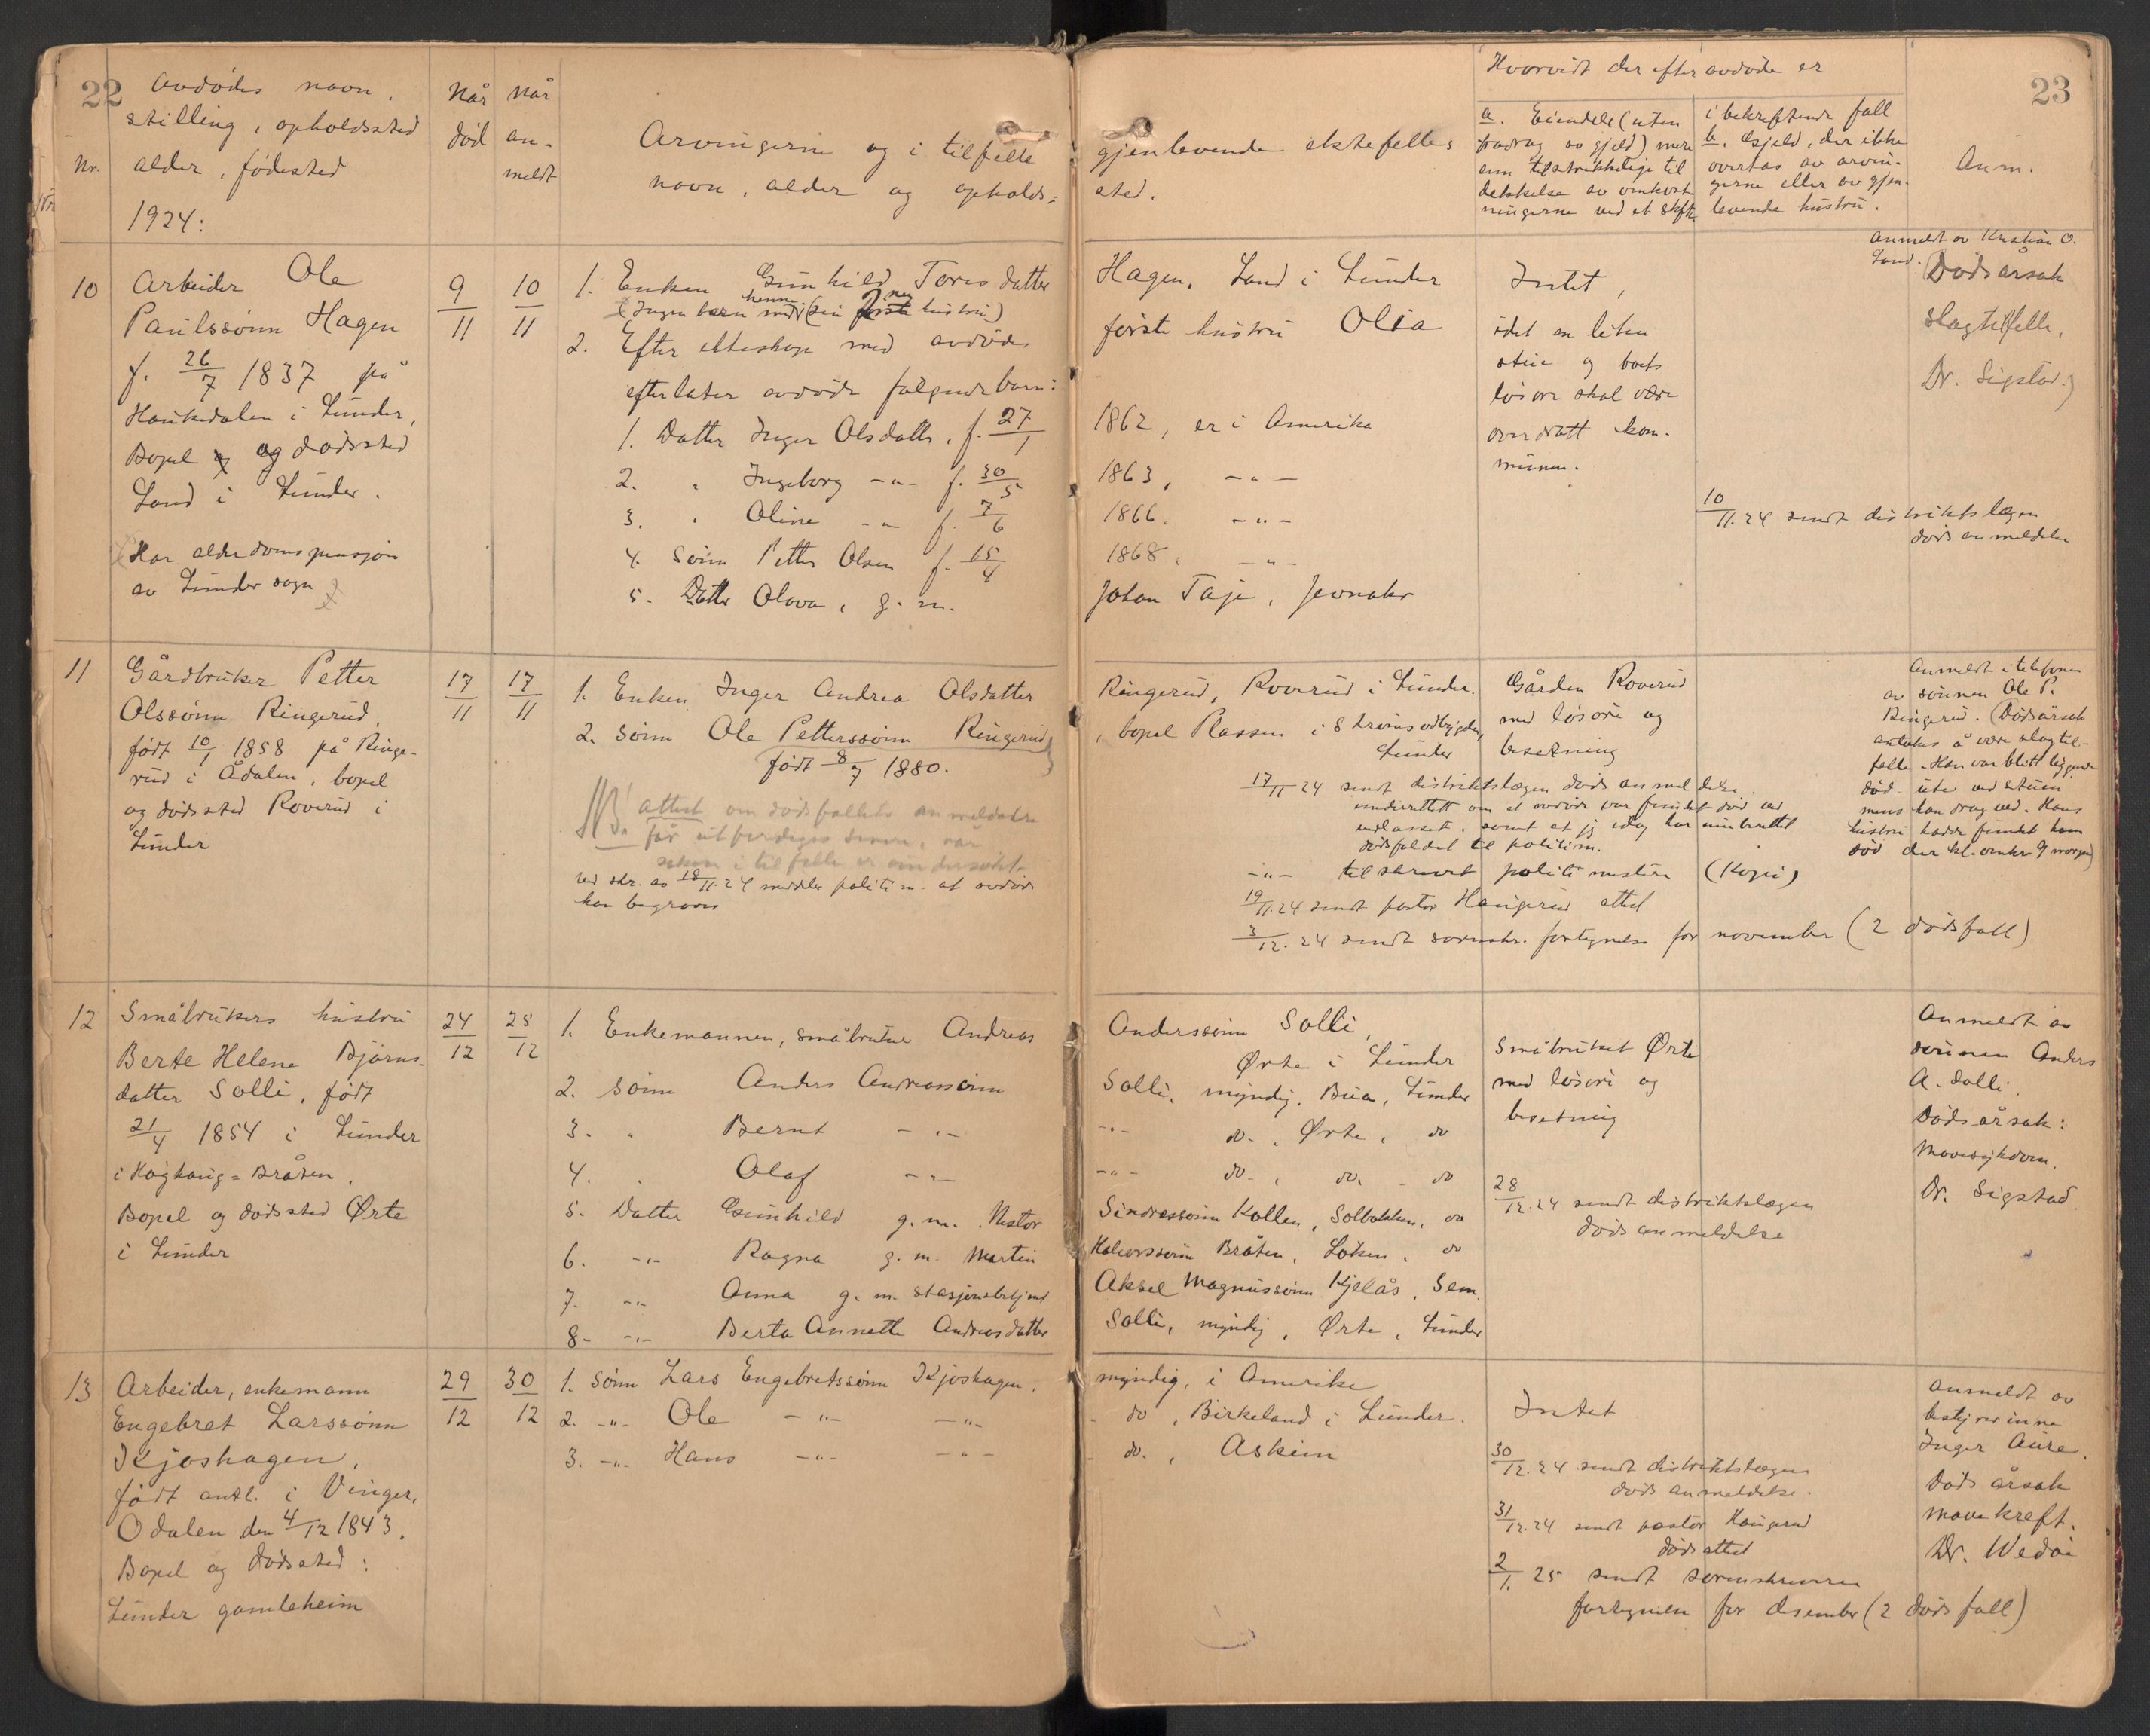 22
23
Avdødes navn,
stilling, opholdssted
Nr. alder, fødested
1924:
Når død
Når an-
meldt
Arvingerne og i tilfelle
navn, alder og opholds=
gjenlevende ektefelles
sted.
Hvorvidt der efter avdøde er
a. Eiendele (uten
fradrag av gjeld) mere
enn tilstrekkelige til
dekkelse av omkost-
ningerne ved et skifte
i bekreftende fall
b. Gjeld, der ikke
overtas av arvin-
gerne eller av gjen-
levende hustru.
Anm.
10
Arbeider Ole
Paulssønn Hagen
f. 26/7 1837 på
Haukedalen i Lunder,
Bopel og dødssted
Land i Lunder.
Har alderdomspensjon
av Lunder sogn
9/11
10/11
1. Enken Gunhild Toresdatter
(Ingen barn med henne (sin 2nen hustru)
2. Efter ekteskap med avdødes
efterlater avdøde følgende barn:
1. Datter Inger Olsdatter, f. 27/1
2. " Ingeborg -"- f. 30/5
3. " Oline -"- f. 7/6
4. Sønn Petter Olsen f. 15/4
5. Datter Olava, g. m.
Hagen, Land i Lunder
første hustru Olia
1862, er i Amerika
1863, -"-
1866. -"-
1868, -"-
Johan Taje, Jevnaker
Intet,
idet en liten
stue og bots
løsøre skal være
overdratt kom-
munen.
10/11.24 sendt distriktslægen
dødsanmeldelse
Anmeldt av Kristian O.
Land. (Dødsårsak
slagtilfelle,
Dr. Sigstad.)
11
Gårdbruker Petter
Olssønn Ringerud,
født 10/1 1858 på Ringe-
rud i Ådalen, bopel
og dødssted Roverud i
Lunder
17/11
17/11
1. Enken Inger Andrea Olsdatter
2. Sønn Ole Petterssønn Ringerud,
født 8/7 1880.
NB! attest om dødsfallets anmeldelse
får utferdiges senere, når
saken i tilfelle er undersøkt.
Ved skr. av 18/11.24 meddeler politim. at avdøde
kan begraves
Ringerud, Roverud i Lunder.
, bopel Plassen i Strømsodbygden,
Lunder
Gården Roverud
med løsøre og
besetning
17/11 24 sendt distriktslægen dødsanmeldelse,
underrettet om at avdøde var funnet død ved
vedlasset, samt at jeg idag har innberettet
dødsfaldet til politim.
-"- tilskrevet politimesteren (Kopi)
19/11.24 sendt pastor Haugerud attest
3/12.24 sendt sorenskr. fortegnelse for november (2 dødsfall)
Anmeldt i telefonen
av sønnen Ole P.
Ringerud. (Dødsårsak
antakes å være slagtil-
felle. Han var blitt liggende
død ute ved stuen
mens han drog ved. Hans
hustru hadde funnet ham
død der kl. omkr. 9 morgen)
12
Småbrukers hustru
Berte Helene Bjørns-
datter Solli, født
21/4 1854 i Lunder
i Haghaug=Bråten,
Bopel og dødssted Ørte
i Lunder
24/12
25/12
1. Enkemannen, småbruker Andreas
2. Sønn Anders Andreassønn
3. " Bernt -"-
4. " Olaf -"-
5. Datter Gunhild g. m. Nestor
6. -"- Ragna g. m. Martin
7. -"- Anna g. m. stasjonsbetjent
8. -"- Berta Annette Andreasdatter
Anderssønn Solli,
Ørte i Lunder
Solli, myndig, Bua, Lunder
-"- do., Ørte, do
-"- do., do. do
Sindressønn Kollen, Solbakken, do
Halvorssønn Bråten, Løken, do
Aksel Magnussønn Kjelås, Sem.
Solli, myndig, Ørte, Lunder
Småbruket Ørte
med løsøre og
besetning
28/12.24 sendt distriktslægen
dødsanmeldelse
Anmeldt av
sønnen Anders
A. Solli.
Dødsårsak:
Mavesykdom.
Dr. Sigstad.
13
Arbeider, enkemann
Engebret Larssønn
Kjoshagen,
født antl. i Vinger,
Odalen den 4/12 1843.
Bopel og dødssted:
Lunder gamleheim
29/12
30/12
1. Sønn Lars Engebretssønn Kjoshagen,
2. -"- Ole -"- -"-
3. -"- Hans -"- -"-
myndig, i Amerika
do, Birkeland i Lunder.
do., Askim
Intet
30/12.24 sendt distriktslægen
dødsanmeldelse.
31/12.24 sendt pastor Haugerud
dødsattest
2/1. 25 sendt sorenskriveren
fortegnelse for desember (2 dødsfall)
Anmeldt av
bestyrerinne
Inger Aure.
Dødsårsak
mavekreft.
Dr. Wedøe